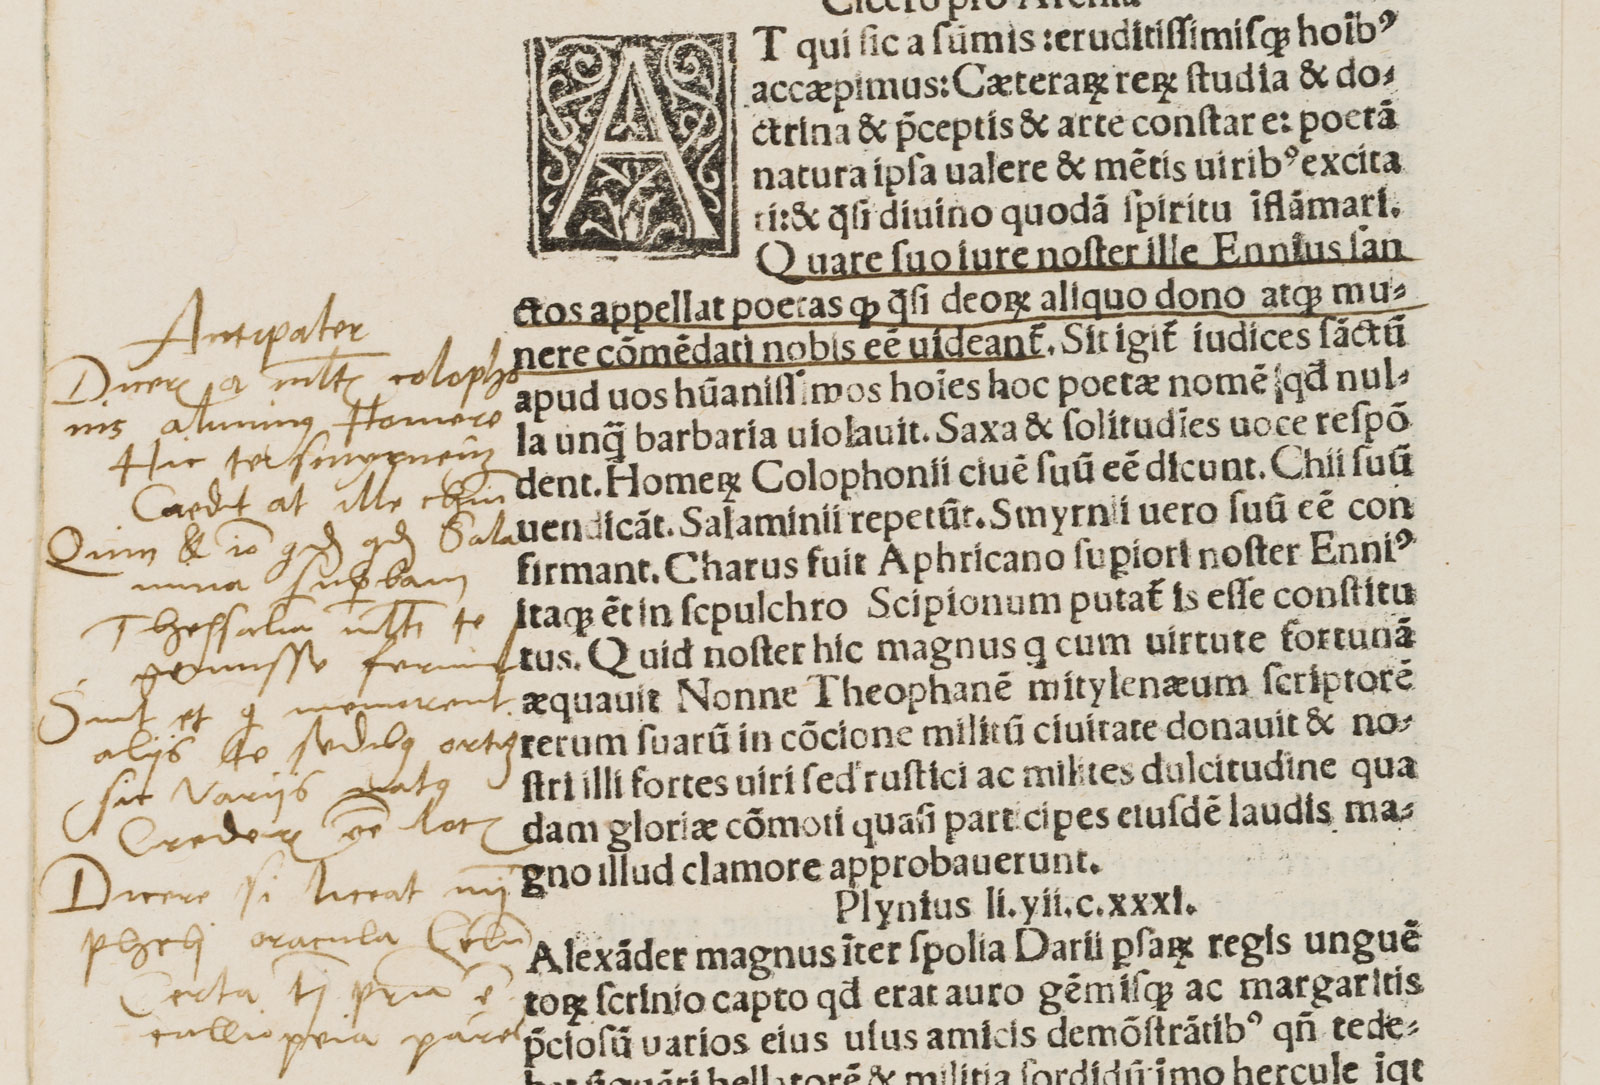 Cicero pro Archia
AT qui sic a sūmis: eruditissimisqꝫ hoīb⁹
accæpimus: Cæteraꝝ reꝝ studia & do-
ctrina & p̄ceptis & arte constare: poetā
natura ipsa ualere & mētis uirib⁹ excita
ri: & q̄si diuino quodā spiritu īflāmari.
Quare suo iure noster ille Ennius san
ctos appellat poetas ꝙ q̄si deoꝝ aliquo dono atqꝫ mu-
nere cōmēdati nobis eē uideant̄. Sit igit̄ iudices sāctū
apud uos hūanissimos hoīes hoc poetæ nomē qd̄ nul-
la unq̄ barbaria uiolauit. Saxa & solitudīes uoce respō
dent. Homeꝝ Colophonii ciuē suū eē dicunt. Chii suū
uendicāt. Salaminii repetūt. Smyrnii uero suū eē con
firmant. Charus fuit Aphricano supiori noster Enni⁹
itaqꝫ ēt in sepulchro Scipionum putat̄ is esse constitu
tus. Quid noster hic magnus q cum uirtute fortunā
æquauit Nonne Theophanē mitylenæum scriptorē
rerum suarū in cōcione militū ciuitate donauit & no-
stri illi fortes uiri sed rustici ac milites dulcitudine qua
dam gloriæ cōmoti quasi participes eiusdē laudis ma-
gno illud clamore approbauerunt.
Plynius li. yii. c. xxxi.
Alexāder magnus īter spolia Darii psaꝝ regis unguē
toꝝ scrinio capto qd̄ erat auro gēmisqꝫ ac margaritis
p̄ciosū uarios eius usus amicis demōstrātib⁹ qn̄ tede-
bellatorē & militia sordidū imo hercule īqt
Antipater
Dicerꝭ a mltꝭ colopho
nis alumnꝰ Homere
Hic te smyrneū
Caedit at ille chiū
Quin & io Sala
mina supbam
Thessalia mlti te
genuisse ferūt
Sunt et q memorent
alijs te sedibꝰ ortū
sic Varijs natꝰ
Crederꝭ ēe locꝭ
Dicere si liceat mj
phebi oracula Celū
Certa tj pria ē
calliopeia parēs